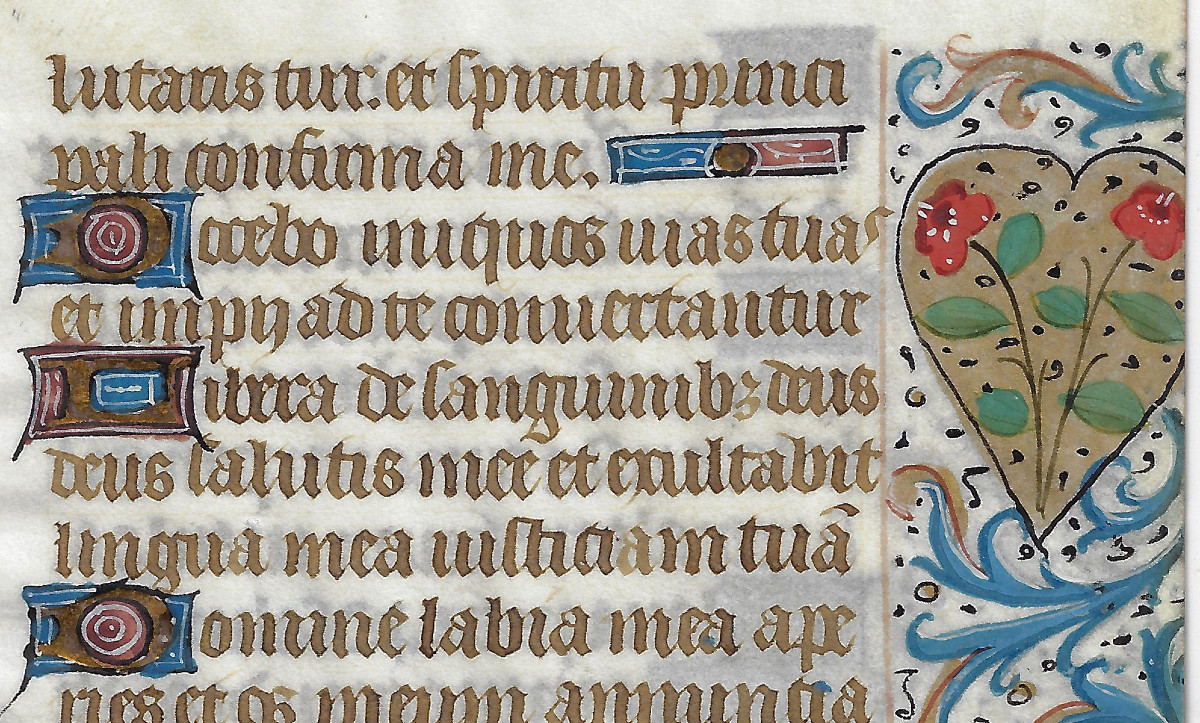 lutaris tui: et spiritu princi
pali confirma me.
Docebo iniquos uias tuas
et impij ad te conuertantur
Libera de sanguinibꝫ deus
deus salutis mee et exultabit
lingua mea iusticiam tuā
Domine labia mea ape
ries et os meum annuncia